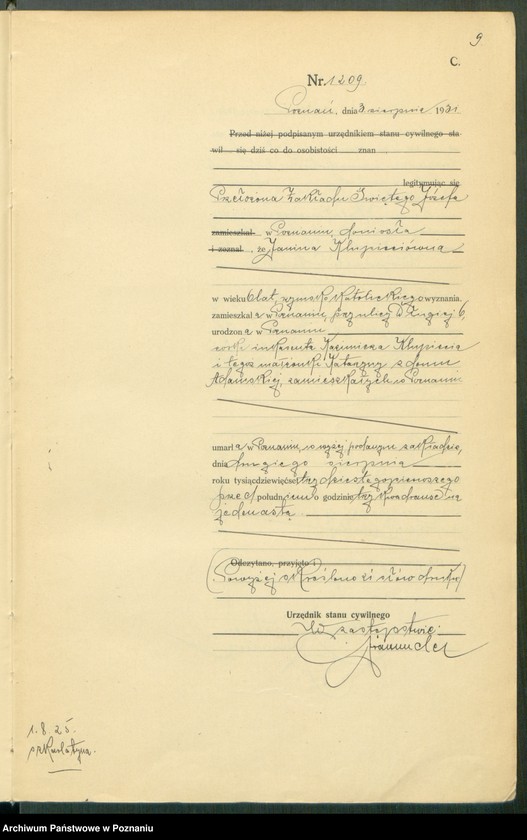 9
C.
Nr. 1209
Poznań, dnia 3 sierpnia 1931
Przed niżej podpisanym urzędnikiem stanu cywilnego sta
wił się dziś co do osobistości znan
legitymując się
Przełożona Zakładu Świętego Józefa
zamieszkał w Poznaniu, doniosła
i zeznał, że Janina Klupieciówna
w wieku 6 lat, rzymsko katolickiego wyznania
zamieszkała w Poznaniu, przy ulicy Długiej 6,
urodzona w Poznaniu
córka inkasenta Kazimierza Klupiecia
i tegoż małżonki Katarzyny z domu
Adamskiej, zamieszkałych w Poznaniu
umarła w Poznaniu, w wyżej podanym zakładzie,
dnia drugiego sierpnia
roku tysiąc dziewięćset trzydziestego pierwszego
przed południem o godzinie trzy kwadranse na
jedenastą.
Odczytano, przyjęto i
(Powyżej skreślono słów druku)
Urzędnik stanu cywilnego
W zastępstwie:
1. 8. 25.
Archiwum Państwowe w Poznaniu